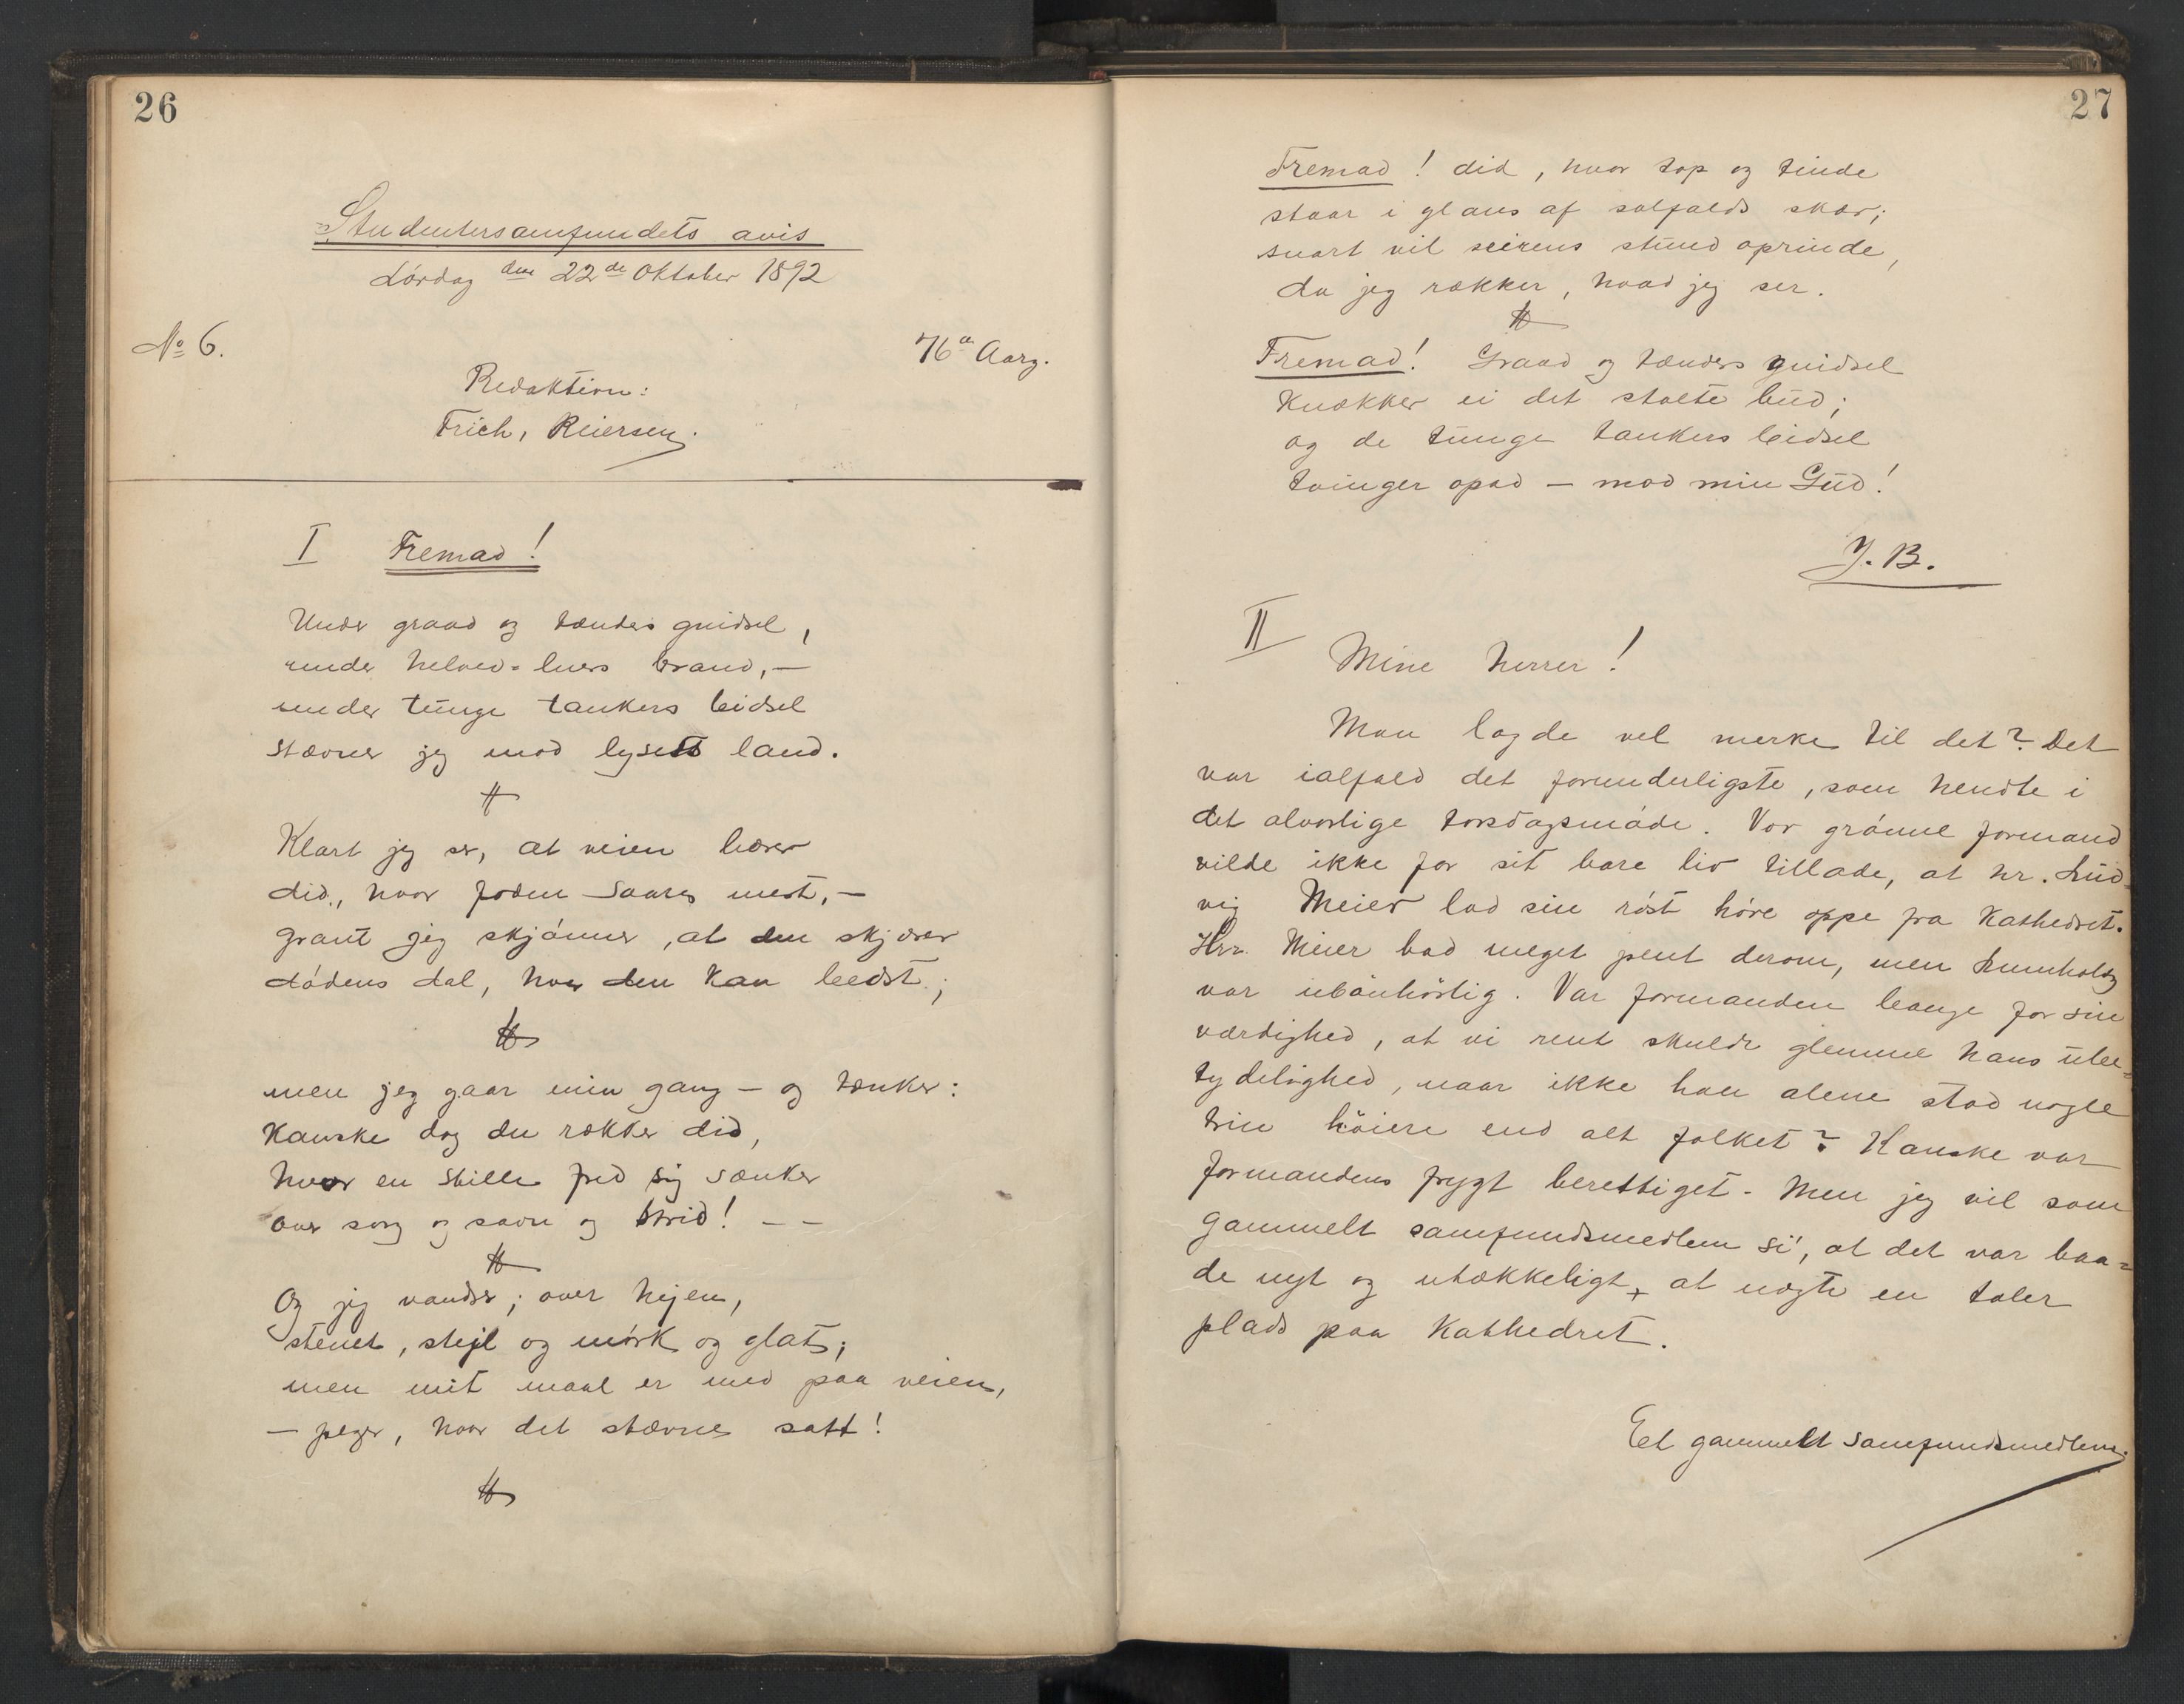 26
Studentersamfundets avis
Lördag den 22de Oktober 1892
No 6.
76a Aarg.
Redaktion:
Frich, Reiersen.
I Fremad!
Under graad og tænders gnidsel,
under helved-luers brand, —
under tunge tankers bidsel
stævner jeg mod lysets land.
Klart jeg ser, at veien bærer
did, hvor foden saares mest, —
grant jeg skjönner, at den skjærer
dödens dal, hvor den kan bedst;
men jeg gaar min gang — og tænker:
Kanske dog du rækker did,
hvor en stille fred sig sænker
over sorg og savn og strid! — —
Og jeg vandrer; over hejen,
stenet, stejl og mörk og glat;
men mit maal er med paa veien,
— peger, hvor det stævne satt!
27
Fremad! did, hvor top og tinde
staar i glans af solfalds skær;
snart vil seirens stund oprinde,
da jeg rækker, hvad jeg ser.
Fremad! Graad og tænders gnidsel
Knækker ei det stolte bud;
og de tunge tankers bidsel
tvinger opad — mod min Gud!
J. B.
II
Mine herrer!
Man lagde vel merke til det? Det
var ialfald det forunderligste, som hendte i
det alvorlige torsdagsmöde. Vor grönne formand
vilde ikke for sit bare liv tillade, at hr. Lud-
vig Meier lod sin röst höre oppe fra Kathedret.
Hr. Meier bad meget pent derom, men Lumholtz
var ubönhörlig. Var formanden bange for sin
værdighed, at vi rent skulde glemme hans ube-
tydelighed, naar ikke han alene stod nogle
trin höiere end alt folket? Kanske var
formandens frygt berettiget. Men jeg vil som
gammelt samfundsmedlem si', at det var baa-
de nyt og utækkeligt, at nægte en taler
plads paa Kathedret.
Et gammelt samfundsmedlem.